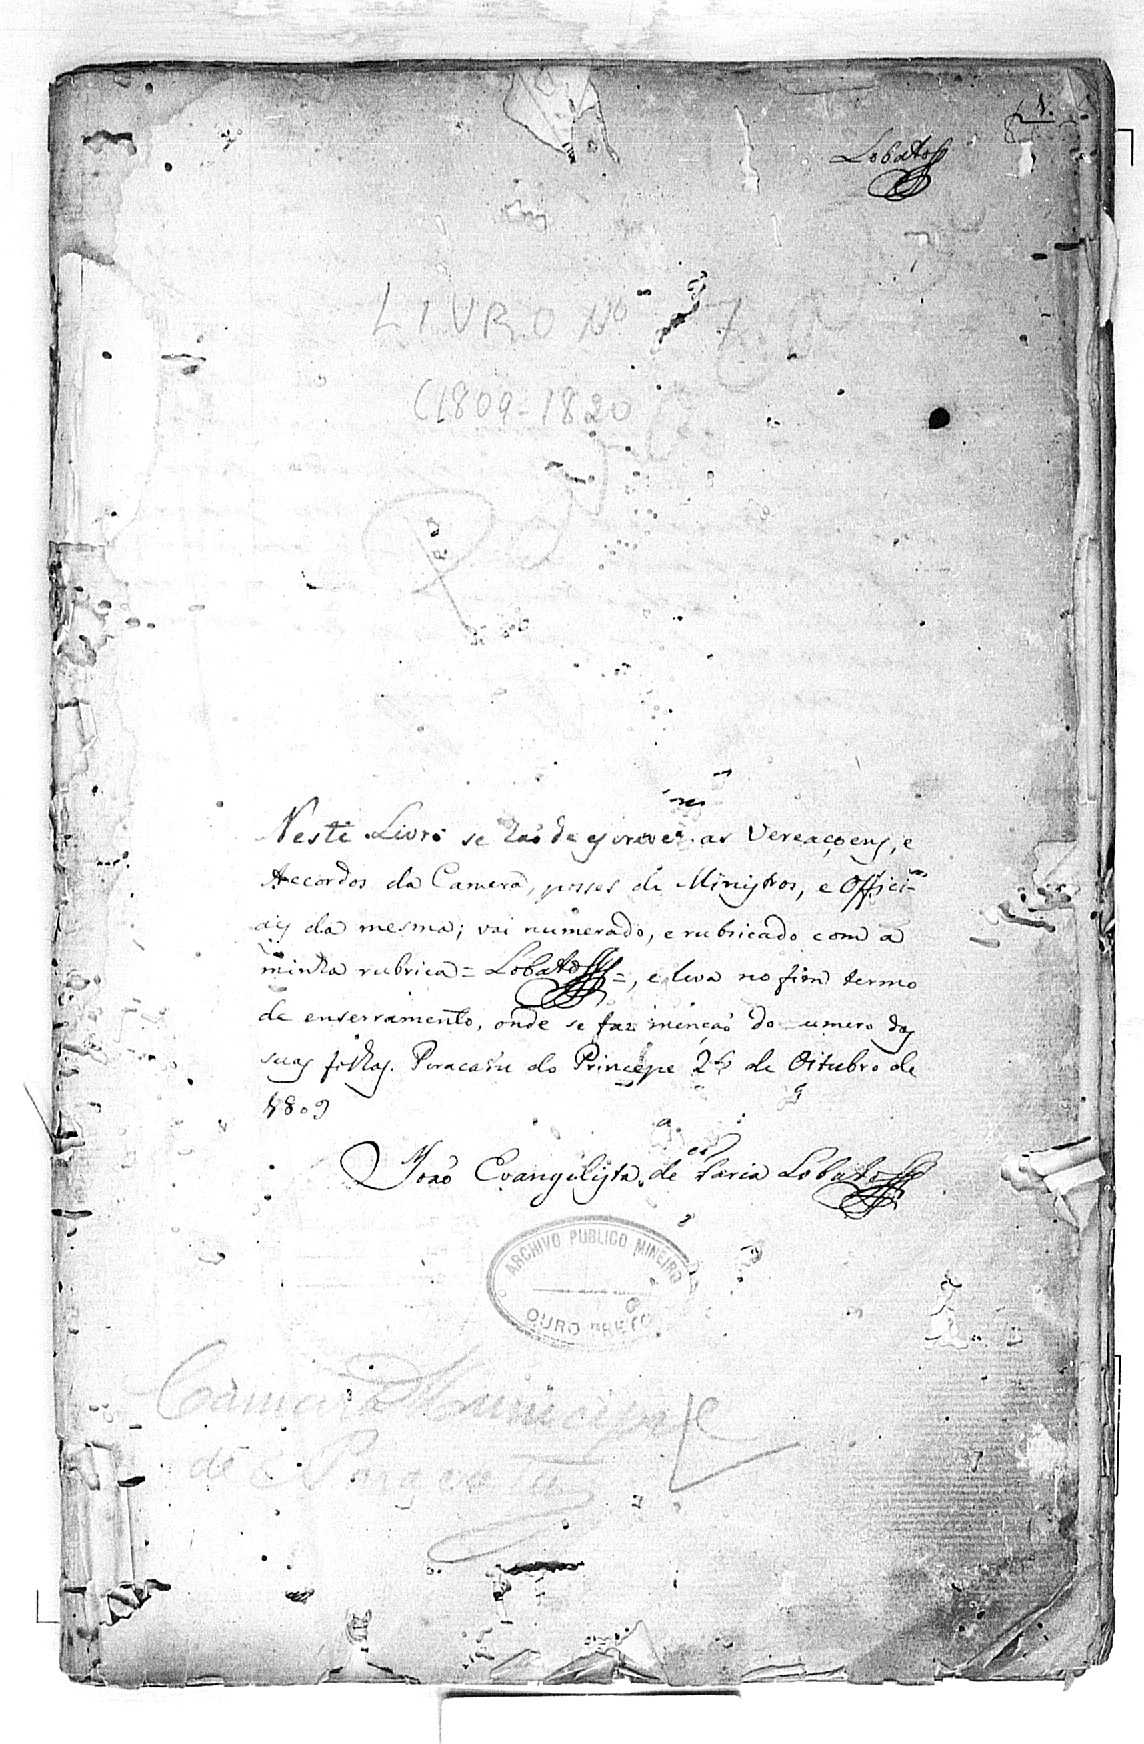 1.
Lobato
LIVRO Nº 7
(1809-1820
Neste Livro se hão de escrever as Vereaçoens, e
Accordos da Camera, posses de Ministros, e Offici-
ais da mesma; vai numerado, e rubricado com a
minha rubrica = Lobato =, e leva no fim termo
de enserramento, onde se faz menção do numero das
suas folhas. Paracatu do Principe 26 de Oitubro de
1809
João Evangelista de Faria Lobato
ARCHIVO PUBLICO MINEIRO
OURO PRETO
Camara Municipal
de Paracatu